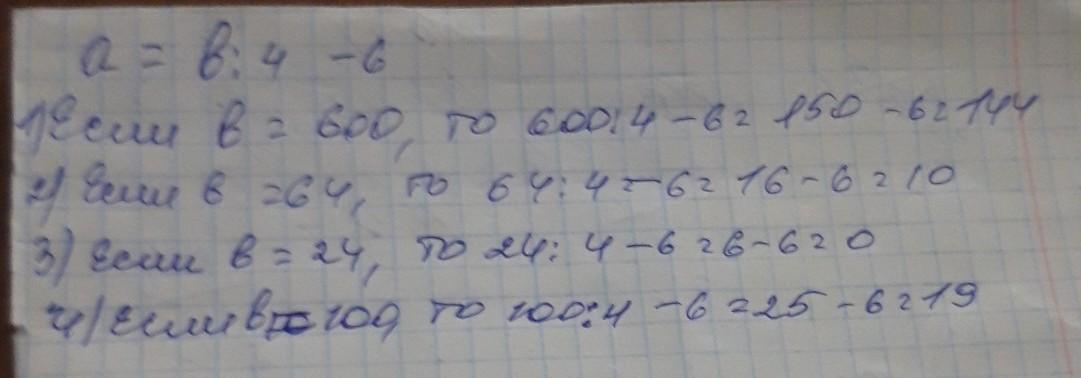 a = в : 4 - 6
1) Если в = 600, то 600 : 4 - 6 = 150 - 6 = 144
2) Если в = 64, то 64 : 4 - 6 = 16 - 6 = 10
3) Если в = 24, то 24 : 4 - 6 = 6 - 6 = 0
4) Если в = 100, то 100 : 4 - 6 = 25 - 6 = 19